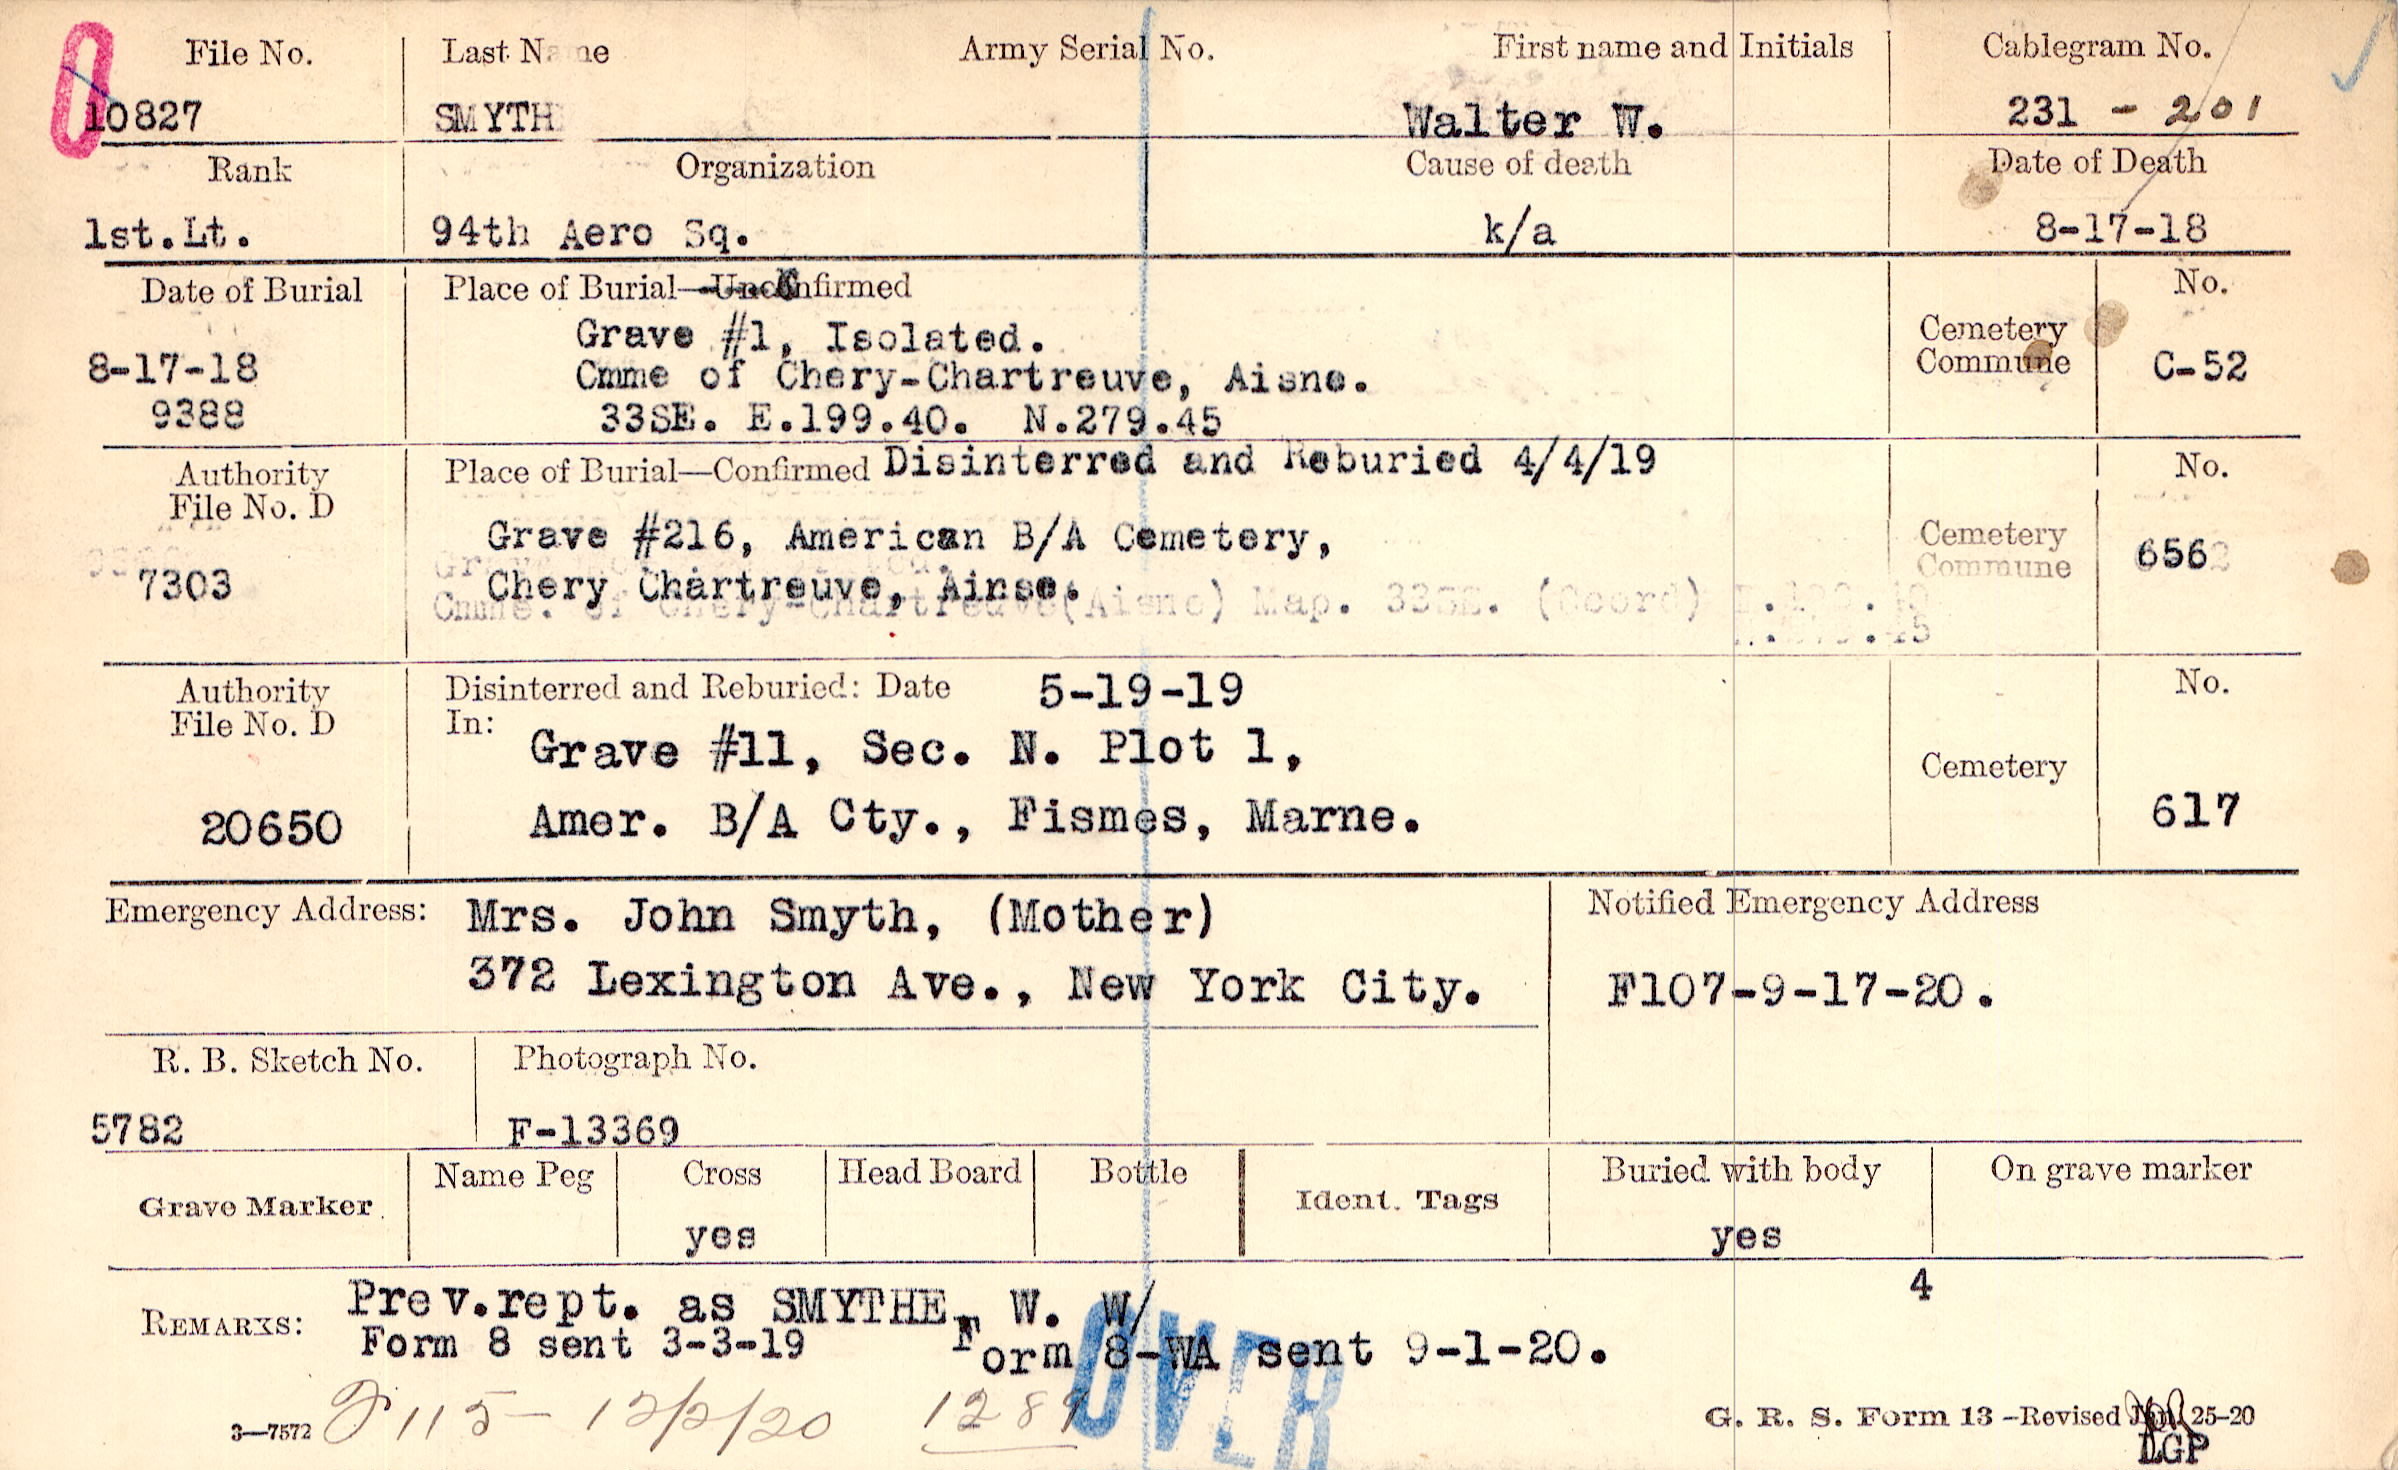 File No. Last Name Army Serial No. First name and Initials Cablegram No.
10827 SMYTH Walter W. 231 - 201
Rank Organization Cause of death Date of Death
1st.Lt. 94th Aero Sq. k/a 8-17-18
Date of Burial Place of Burial—Unconfirmed No.
Grave #1, Isolated. Cemetery
8-17-18 Cmme of Chery-Chartreuve, Aisne. Commune C-52
9388 33SE. E.199.40. N.279.45
Authority Place of Burial—Confirmed Disinterred and Reburied 4/4/19 No.
File No. D
Grave #216, American B/A Cemetery, Cemetery
7303 Chery Chartreuve, Ainse. Commune 656
Cmme. of Chery-Chartreuve(Aisne) Map. 33SE. (Coord) E.199.40
N.279.45
Authority Disinterred and Reburied: Date 5-19-19 No.
File No. D In:
Grave #11, Sec. N. Plot 1, Cemetery
20650 Amer. B/A Cty., Fismes, Marne. 617
Emergency Address: Mrs. John Smyth, (Mother) Notified Emergency Address
372 Lexington Ave., New York City. F107-9-17-20.
R. B. Sketch No. Photograph No.
5782 F-13369
Grave Marker Name Peg Cross Head Board Bottle Ident. Tags Buried with body On grave marker
yes yes
4
REMARKS: Prev.rept. as SMYTHE, W. W/
Form 8 sent 3-3-19 Form 8-WA sent 9-1-20.
OVER
3—7572 115 - 12/2/20 1289 G. R. S. Form 13 -Revised Jan. 25-20
LGP